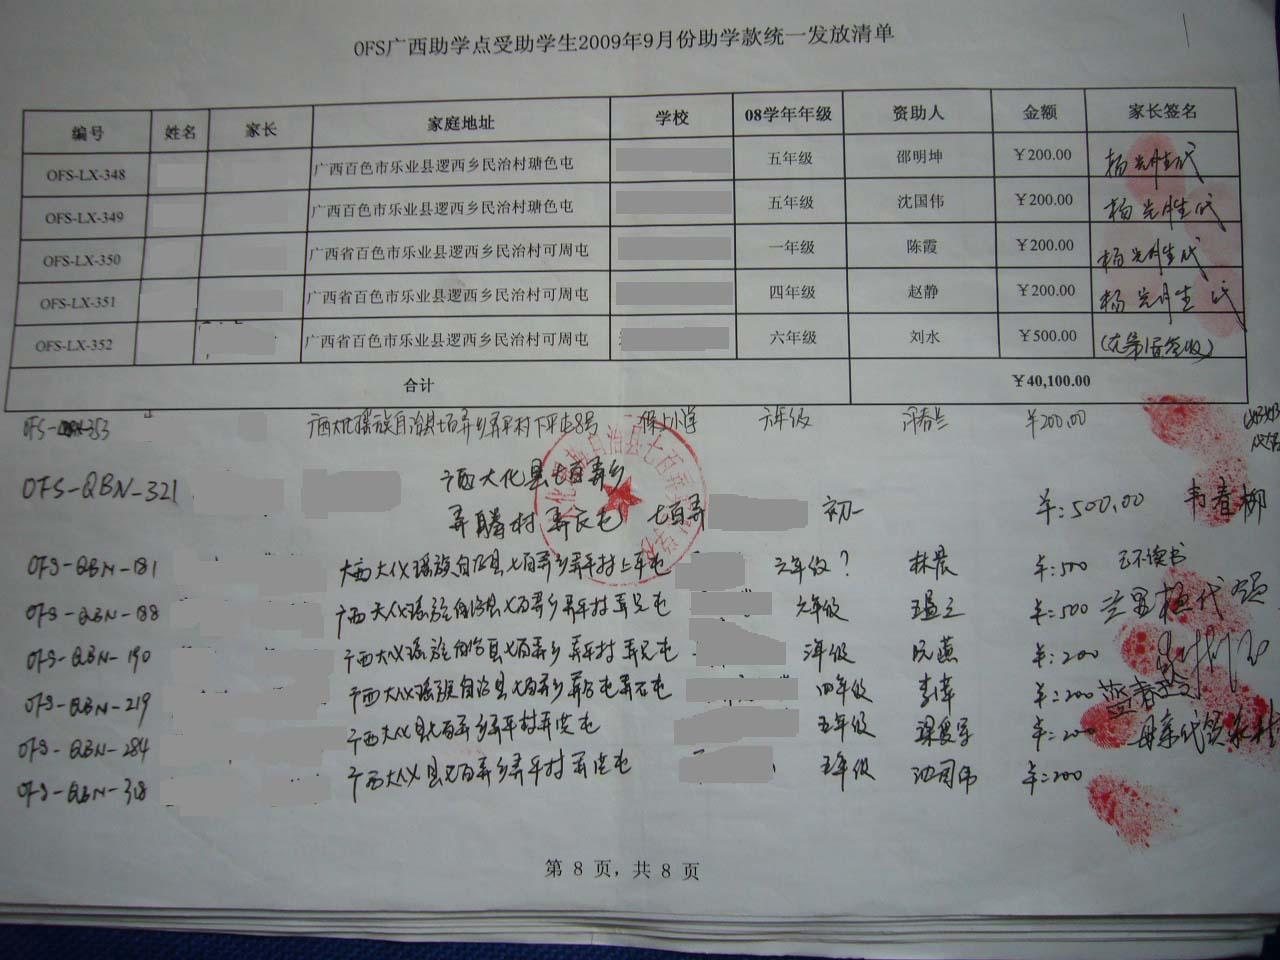 OFS广西助学点受助学生2009年9月份助学款统一发放清单
编号 姓名 家长 家庭地址 学校 08学年年级 资助人 金额 家长签名
OFS-LX-348 广西百色市乐业县逻西乡民治村瑭色屯 五年级 邵明坤 ￥200.00 杨光胜代
OFS-LX-349 广西百色市乐业县逻西乡民治村瑭色屯 五年级 沈国伟 ￥200.00 杨光胜代
OFS-LX-350 广西省百色市乐业县逻西乡民治村可周屯 一年级 陈霞 ￥200.00 杨光胜代
OFS-LX-351 广西省百色市乐业县逻西乡民治村可周屯 四年级 赵静 ￥200.00 杨光胜代
OFS-LX-352 广西省百色市乐业县逻西乡民治村可周屯 六年级 刘水 ￥500.00
合计 ￥40,100.00
OFS- 353 广西大化瑶族自治县七百弄乡弄平村下平屯8号 保上小学 六年级 ￥200.00
OFS-QBN-321 广西大化县七百弄乡
弄腾村 弄辰屯 七百弄 初一 ￥:500.00 韦春柳
OFS-QBN-181 广西大化瑶族自治县七百弄乡弄平村上平屯 六年级? 林晨 ￥:500 已不读书
OFS-QBN-188 广西大化瑶族自治县七百弄乡弄平村弄兄屯 六年级 ￥:500
OFS-QBN-190 广西大化瑶族自治县七百弄乡弄平村弄兄屯 年级 阮燕 ￥:200
OFS-QBN-219 广西大化瑶族自治县七百弄乡 四年级 李萍 ￥:200
OFS-QBN-284 广西大化县七百弄乡弄平村 五年级 ￥:200
OFS-QBN-318 广西大化县七百弄乡弄平村 五年级 沈国伟 ￥:200
第 8 页，共 8 页